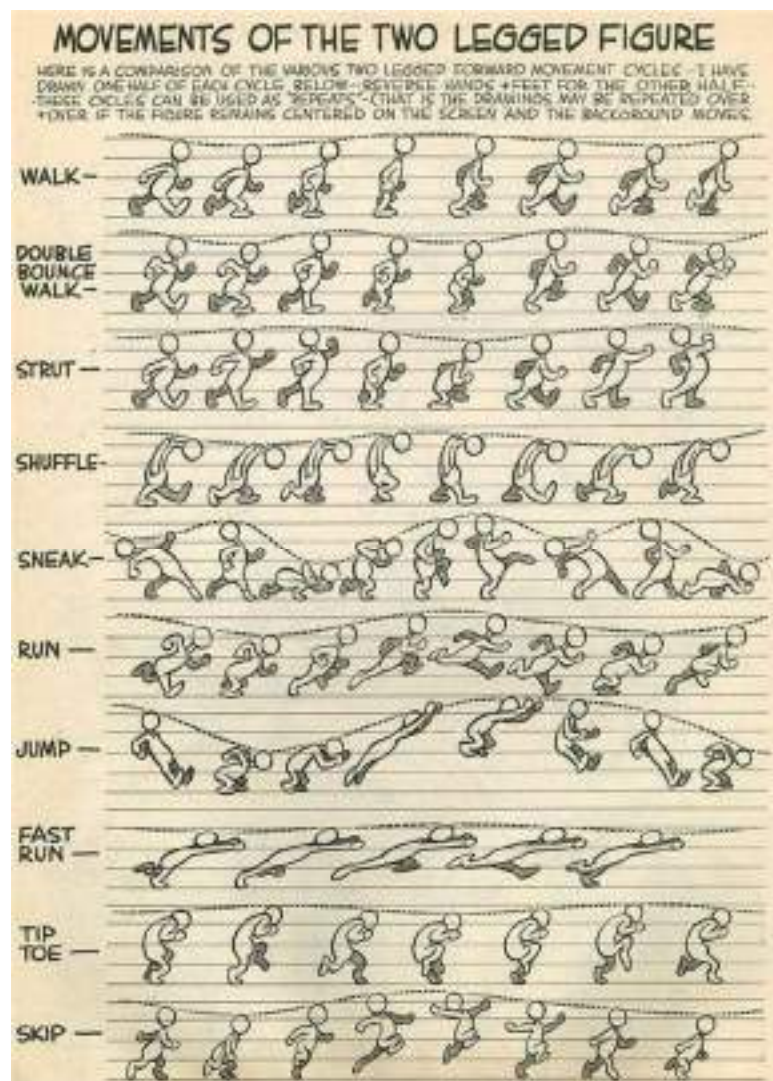 MOVEMENTS OF THE TWO LEGGED FIGURE
HERE IS A COMPARISON OF THE VARIOUS TWO LEGGED FORWARD MOVEMENT CYCLES--I HAVE
DRAWN ONE HALF OF EACH CYCLE BELOW--REVERSE HANDS + FEET FOR THE OTHER HALF--
-THESE CYCLES CAN BE USED AS "REPEATS"-(THAT IS THE DRAWINGS MAY BE REPEATED OVER
+ OVER IF THE FIGURE REMAINS CENTERED ON THE SCREEN AND THE BACKGROUND MOVES.
WALK-
DOUBLE
BOUNCE
WALK-
STRUT-
SHUFFLE-
SNEAK-
RUN-
JUMP-
FAST
RUN-
TIP
TOE-
SKIP-